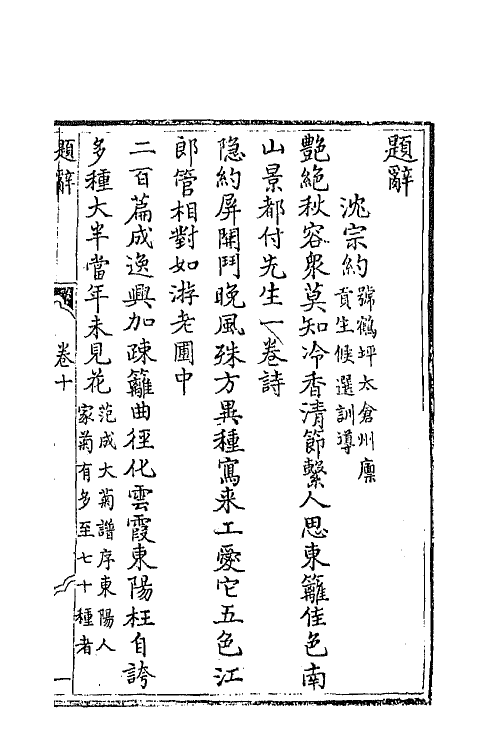 題辭
沈宗約號鶴坪太倉州廩
貢生候選訓導
艷絶秋容衆莫知冷香清節繫人思東籬佳色南
山景都付先生一卷詩
隐約屏開鬥晚風殊方異種寫来工愛它五色江
郎管相對如游老圃中
二百篇成逸興加疎籬曲徑化雲霞東陽枉自誇
多種大半當年未見花范成大菊譜序東陽人
家菊有多至七十種者
題辭
卷十
一